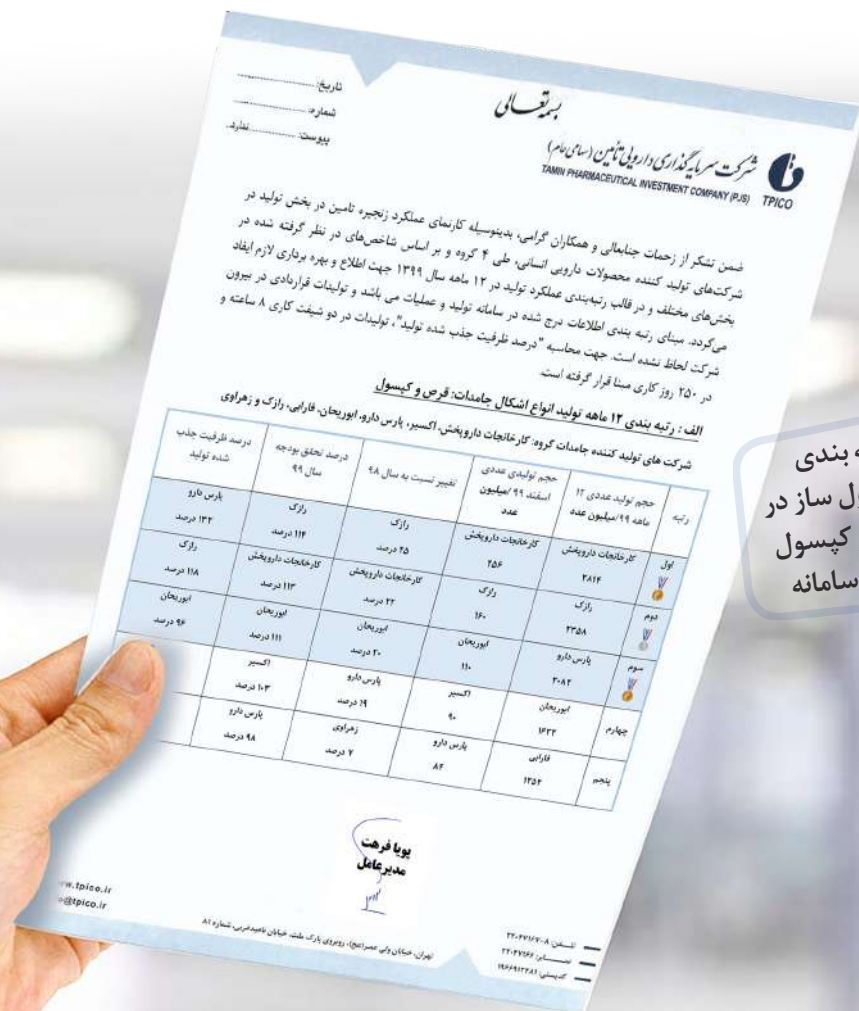 بسمه تعالی
شرکت سرمایه گذاری دارویی تأمین (سهامی عام)
TAMIN PHARMACEUTICAL INVESTMENT COMPANY (PJS)
TPICO
تاریخ:
شماره:
پیوست: ندارد.
ضمن تشکر از زحمات جنابعالی و همکاران گرامی، بدینوسیله کارنمای عملکرد زنجیره تامین در بخش تولید در
شرکت‌های تولید کننده محصولات دارویی انسانی، طی ۴ گروه و بر اساس شاخص‌های در نظر گرفته شده در
بخش‌های مختلف و در قالب رتبه‌بندی عملکرد تولید در ۱۲ ماهه سال ۱۳۹۹ جهت اطلاع و بهره برداری لازم ایفاد
می‌گردد. مبنای رتبه بندی اطلاعات درج شده در سامانه تولید و عملیات می باشد و تولیدات قراردادی در بیرون
شرکت لحاظ نشده است. جهت محاسبه "درصد ظرفیت جذب شده تولید"، تولیدات در دو شیفت کاری ۸ ساعته و
در ۲۵۰ روز کاری مبنا قرار گرفته است.
الف : رتبه بندی ۱۲ ماهه تولید انواع اشکال جامدات: قرص و کپسول
شرکت های تولید کننده جامدات گروه: کارخانجات داروپخش، اکسیر، پارس دارو، ابوریحان، فارابی، رازک و زهراوی
رتبه حجم تولید عددی ۱۲ ماهه ۹۹/میلیون عدد حجم تولیدی عددی اسفند ۹۹ /میلیون عدد تغییر نسبت به سال ۹۸ درصد تحقق بودجه سال ۹۹ درصد ظرفیت جذب شده تولید
اول کارخانجات داروپخش ۲۸۱۴ کارخانجات داروپخش ۲۵۶ رازک ۲۵ درصد رازک ۱۱۴ درصد پارس دارو ۱۳۲ درصد
دوم رازک ۲۳۵۸ رازک ۱۶۰ کارخانجات داروپخش ۲۲ درصد کارخانجات داروپخش ۱۱۳ درصد رازک ۱۱۸ درصد
سوم پارس دارو ۲۰۸۲ ابوریحان ۱۱۰ ابوریحان ۲۰ درصد ابوریحان ۱۱۱ درصد ابوریحان ۹۶ درصد
چهارم ابوریحان ۱۶۲۲ اکسیر ۹۰ پارس دارو ۱۹ درصد اکسیر ۱۰۳ درصد
پنجم فارابی ۱۲۵۲ پارس دارو ۸۴ زهراوی ۷ درصد پارس دارو ۹۸ درصد
پویا فرهت
مدیرعامل
w.tpico.ir
@tpico.ir
تهران، خیابان ولی عصر(عج)، روبروی پارک ملت، خیابان ناهید غربی، شماره ۸۱
تلفن: ۲۲۰۴۷۱۶۷-۸
نمابر: ۲۲۰۴۷۱۶۶
کدپستی:
ه بندی
ل ساز در
کپسول
سامانه